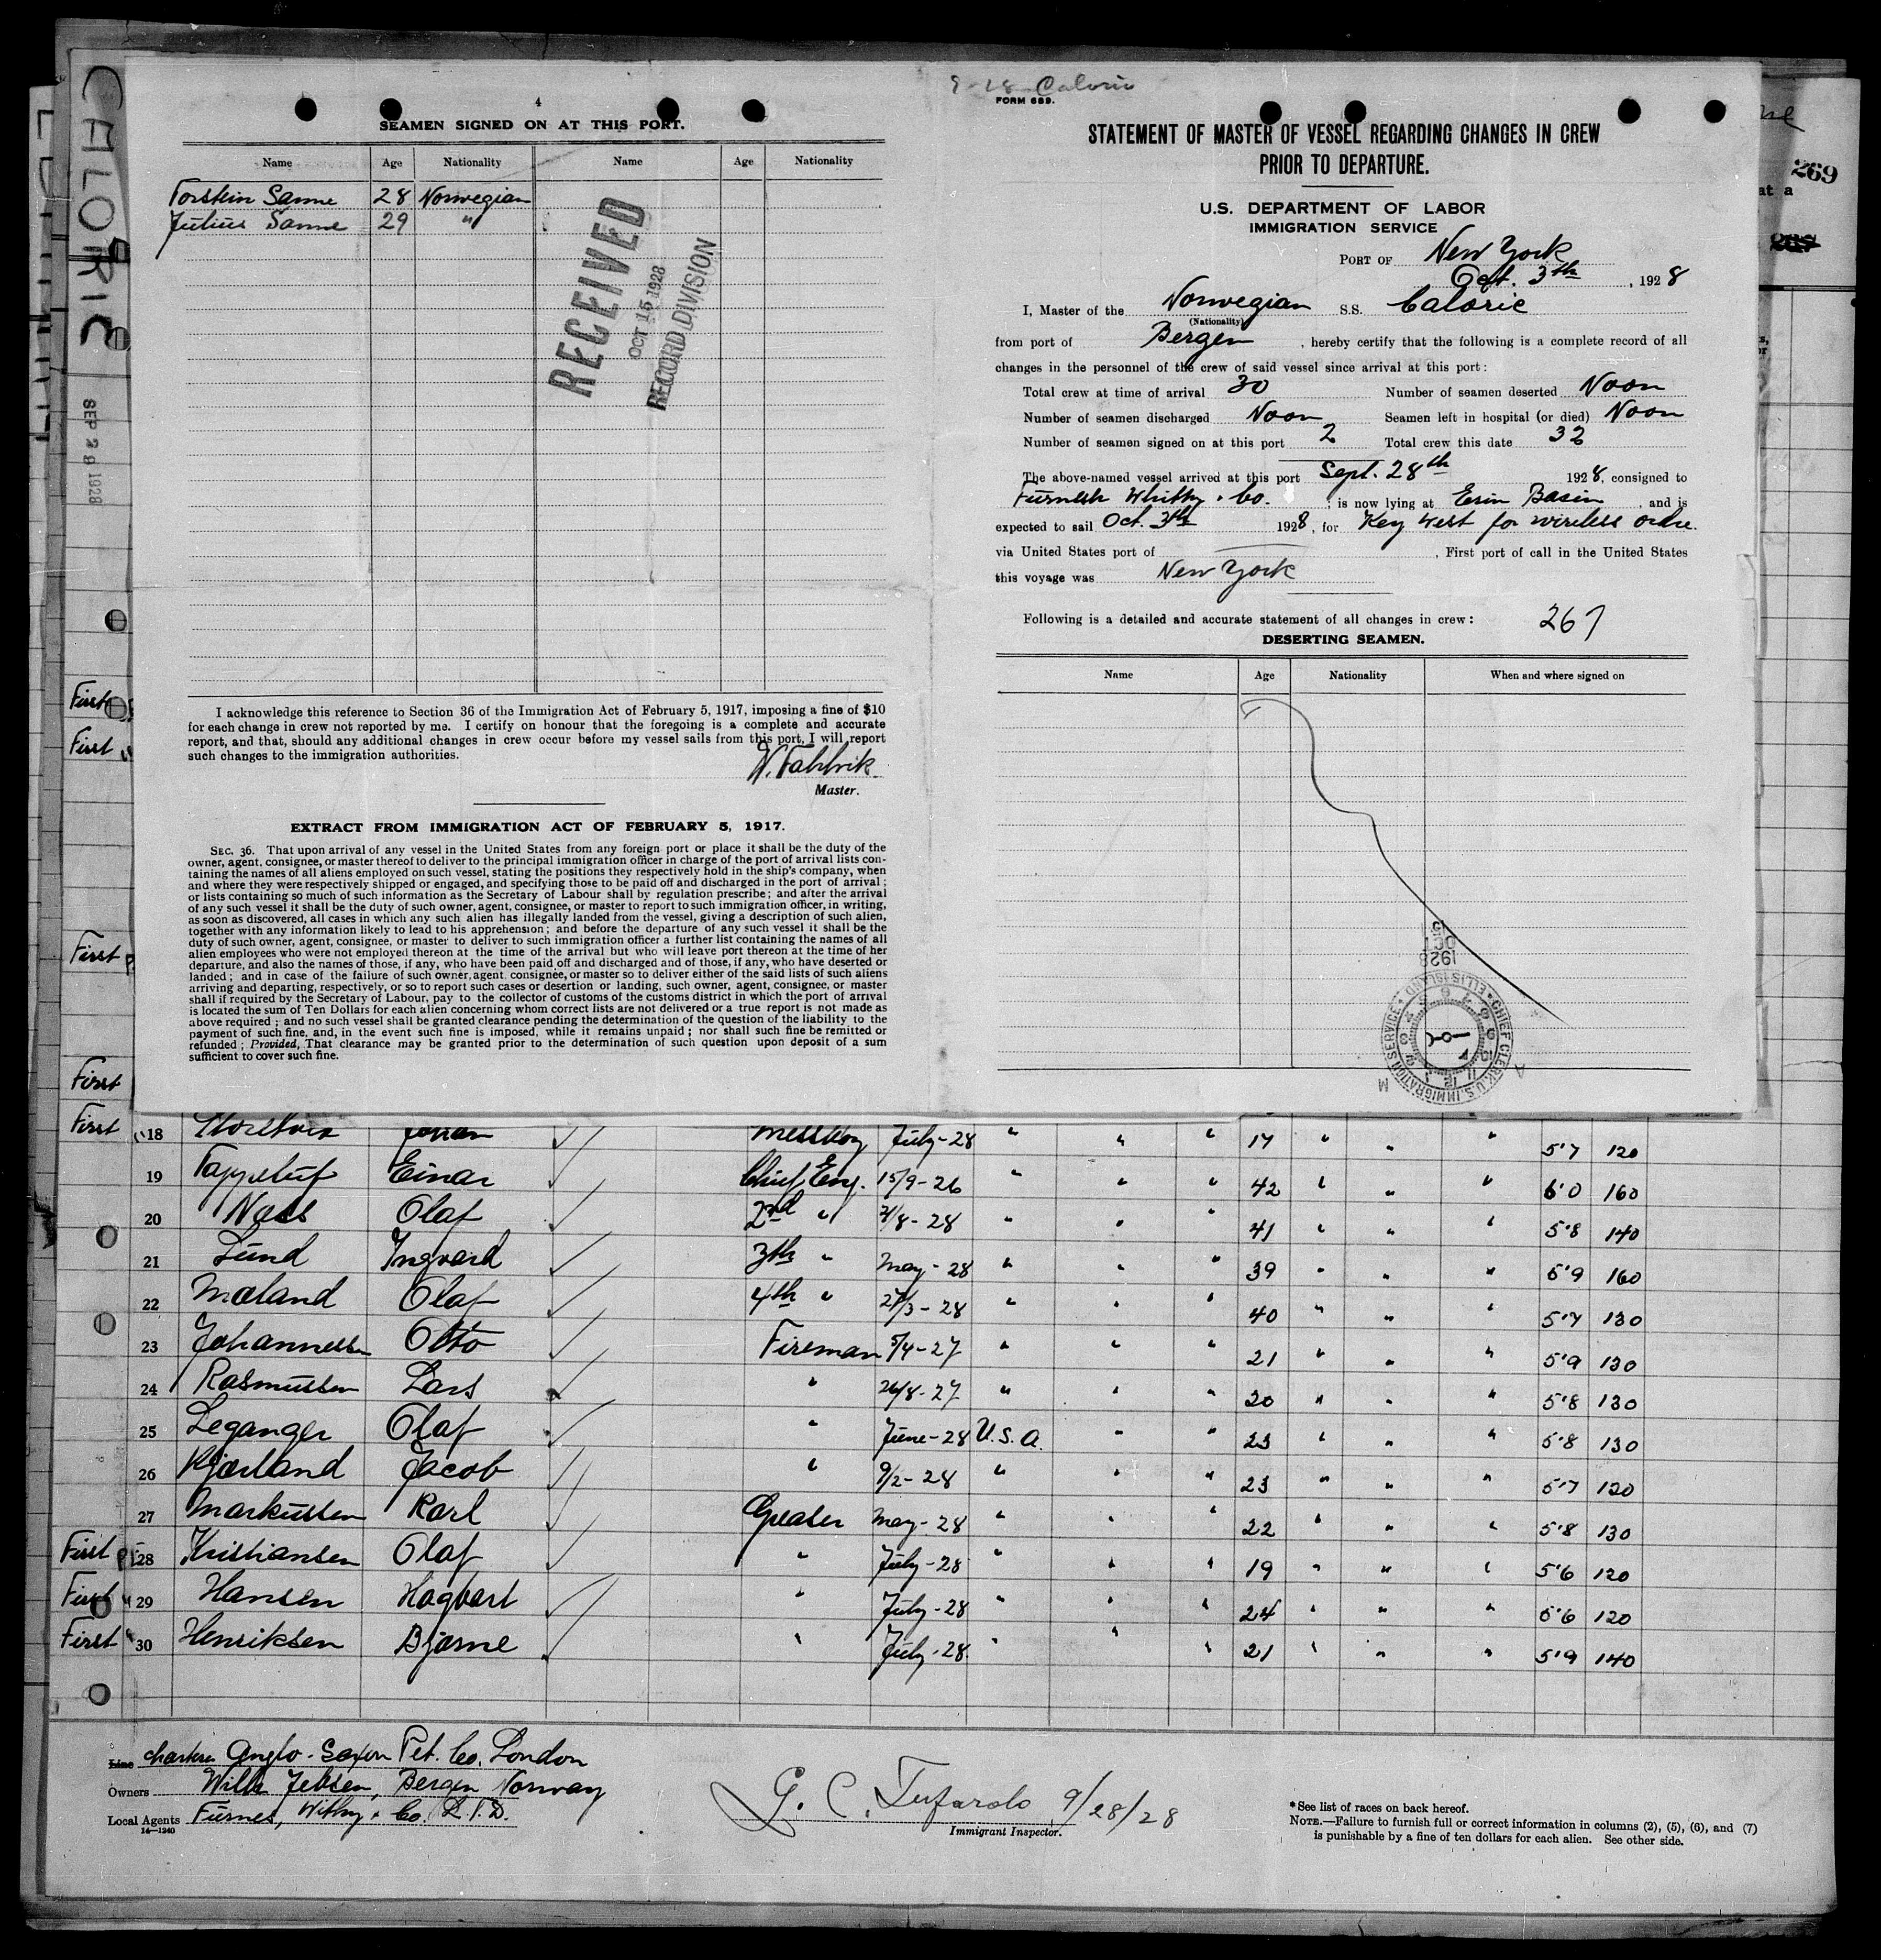 CALORIC
SEP 29 1928
4
SEAMEN SIGNED ON AT THIS PORT.
Name Age Nationality Name Age Nationality
Torstein Sanne 28 Norwegian
Julius Sanne 29 "
RECEIVED
OCT 15 1928
RECORD DIVISION
I acknowledge this reference to Section 36 of the Immigration Act of February 5, 1917, imposing a fine of $10
for each change in crew not reported by me. I certify on honour that the foregoing is a complete and accurate
report, and that, should any additional changes in crew occur before my vessel sails from this port, I will report
such changes to the immigration authorities.
Master.
EXTRACT FROM IMMIGRATION ACT OF FEBRUARY 5, 1917.
SEC. 36. That upon arrival of any vessel in the United States from any foreign port or place it shall be the duty of the
owner, agent, consignee, or master thereof to deliver to the principal immigration officer in charge of the port of arrival lists con-
taining the names of all aliens employed on such vessel, stating the positions they respectively hold in the ship's company, when
and where they were respectively shipped or engaged, and specifying those to be paid off and discharged in the port of arrival;
or lists containing so much of such information as the Secretary of Labour shall by regulation prescribe; and after the arrival
of any such vessel it shall be the duty of such owner, agent, consignee, or master to report to such immigration officer, in writing,
as soon as discovered, all cases in which any such alien has illegally landed from the vessel, giving a description of such alien,
together with any information likely to lead to his apprehension; and before the departure of any such vessel it shall be the
duty of such owner, agent, consignee, or master to deliver to such immigration officer a further list containing the names of all
alien employees who were not employed thereon at the time of the arrival but who will leave port thereon at the time of her
departure, and also the names of those, if any, who have been paid off and discharged and of those, if any, who have deserted or
landed; and in case of the failure of such owner, agent, consignee, or master so to deliver either of the said lists of such aliens
arriving and departing, respectively, or so to report such cases or desertion or landing, such owner, agent, consignee, or master
shall if required by the Secretary of Labour, pay to the collector of customs of the customs district in which the port of arrival
is located the sum of Ten Dollars for each alien concerning whom correct lists are not delivered or a true report is not made as
above required; and no such vessel shall be granted clearance pending the determination of the question of the liability to the
payment of such fine, and, in the event such fine is imposed, while it remains unpaid; nor shall such fine be remitted or
refunded; Provided, That clearance may be granted prior to the determination of such question upon deposit of a sum
sufficient to cover such fine.
9-28 Caloric
FORM 689.
STATEMENT OF MASTER OF VESSEL REGARDING CHANGES IN CREW
PRIOR TO DEPARTURE.
U.S. DEPARTMENT OF LABOR
IMMIGRATION SERVICE
PORT OF New York
Oct. 3th, 1928
I, Master of the Norwegian S.S. Caloric
(Nationality)
from port of Bergen, hereby certify that the following is a complete record of all
changes in the personnel of the crew of said vessel since arrival at this port:
Total crew at time of arrival 30 Number of seamen deserted Noon
Number of seamen discharged Noon Seamen left in hospital (or died) Noon
Number of seamen signed on at this port 2 Total crew this date 32
The above-named vessel arrived at this port Sept. 28th 1928, consigned to
Furnesh Whithy & Co. ; is now lying at Erin Basin, and is
expected to sail Oct. 3th 1928, for Key West for wireless ordre.
via United States port of —. First port of call in the United States
this voyage was New York
Following is a detailed and accurate statement of all changes in crew: 267
DESERTING SEAMEN.
Name Age Nationality When and where signed on
1928
OCT
15
CHIEF CLERK, U.S. IMMIGRATION SERVICE * ELLIS ISLAND *
269
at a
First
First
First
First
First 18 Messboy July-28 " " " 17 " " " 5'7 120
19 Tappeluf Einar Chief Eng. 15/9-26 " " " 42 " " " 6'0 160
20 Ness Olaf 2nd " /8-28 " " " 41 " " " 5'8 140
21 Lund Ingvard 3th " May-28 " " " 39 " " " 5'9 160
22 Mæland Olaf 4th " 27/3-28 " " " 40 " " " 5'7 130
23 Johannessen Otto Fireman 5/4-27 " " " 21 " " " 5'9 130
24 Rasmussen Lars " 26/8-27 " " " 20 " " " 5'8 130
25 Leganger Olaf " June-28 U.S.A. " " 23 " " " 5'8 130
26 Kjærland Jacob " 9/2-28 " " " 23 " " " 5'7 120
27 Markussen Karl Greaser May-28 " " " 22 " " " 5'8 130
First 28 Kristiansen Olaf " July-28 " " " 19 " " " 5'6 120
First " 29 Hansen Hagbart " July-28 " " " 24 " " " 5'6 120
First " 30 Henriksen Bjarne " July-28 " " " 21 " " " 5'9 140
Line charters Anglo-Saxon Pet. Co. London
Owners Wilh Jebsen, Bergen Norway
Local Agents Furnes, Withy & Co. L.T.D.
14—1240
G. C. Tufarolo 9/28/28
Immigrant Inspector.
*See list of races on back hereof.
NOTE.—Failure to furnish full or correct information in columns (2), (5), (6), and (7)
is punishable by a fine of ten dollars for each alien. See other side.